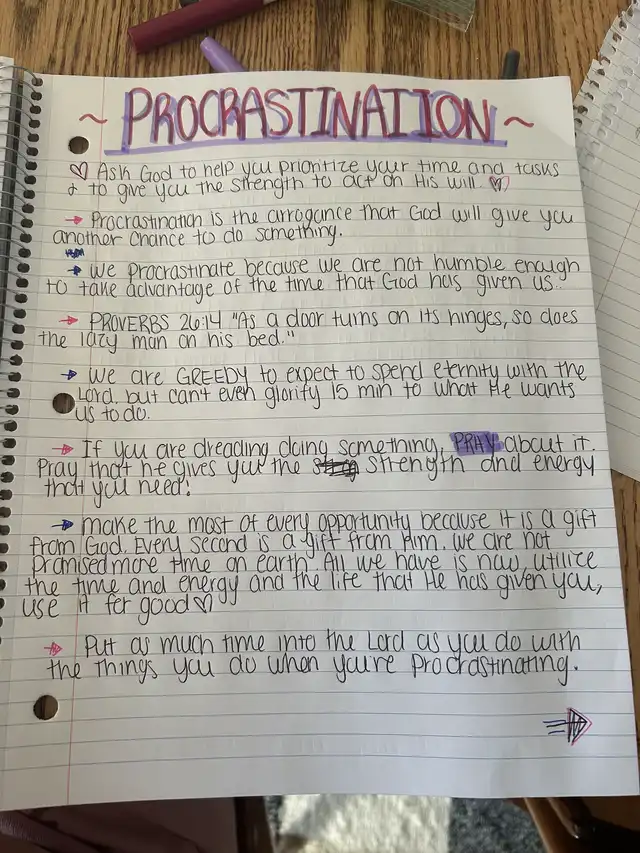 ~ PROCRASTINATION ~
♡ Ask God to help you prioritize your time and tasks
& to give you the strength to act on His will ♡
→ Procrastination is the arrogance that God will give you
another chance to do something.
→ we procrastinate because we are not humble enough
to take advantage of the time that God has given us.
→ PROVERBS 26:14 "As a door turns on its hinges, so does
the lazy man on his bed."
→ we are GREEDY to expect to spend eternity with the
Lord, but can't even glorify 15 min to what He wants
us to do.
→ If you are dreading doing something, PRAY about it.
Pray that he gives you the strength and energy
that you need!
→ make the most of every opportunity because it is a gift
from God. Every second is a gift from Him. we are not
promised more time on earth. All we have is now, utilize
the time and energy and the life that He has given you,
use it for good ♡
→ Put as much time into the Lord as you do with
the things you do when you're procrastinating.